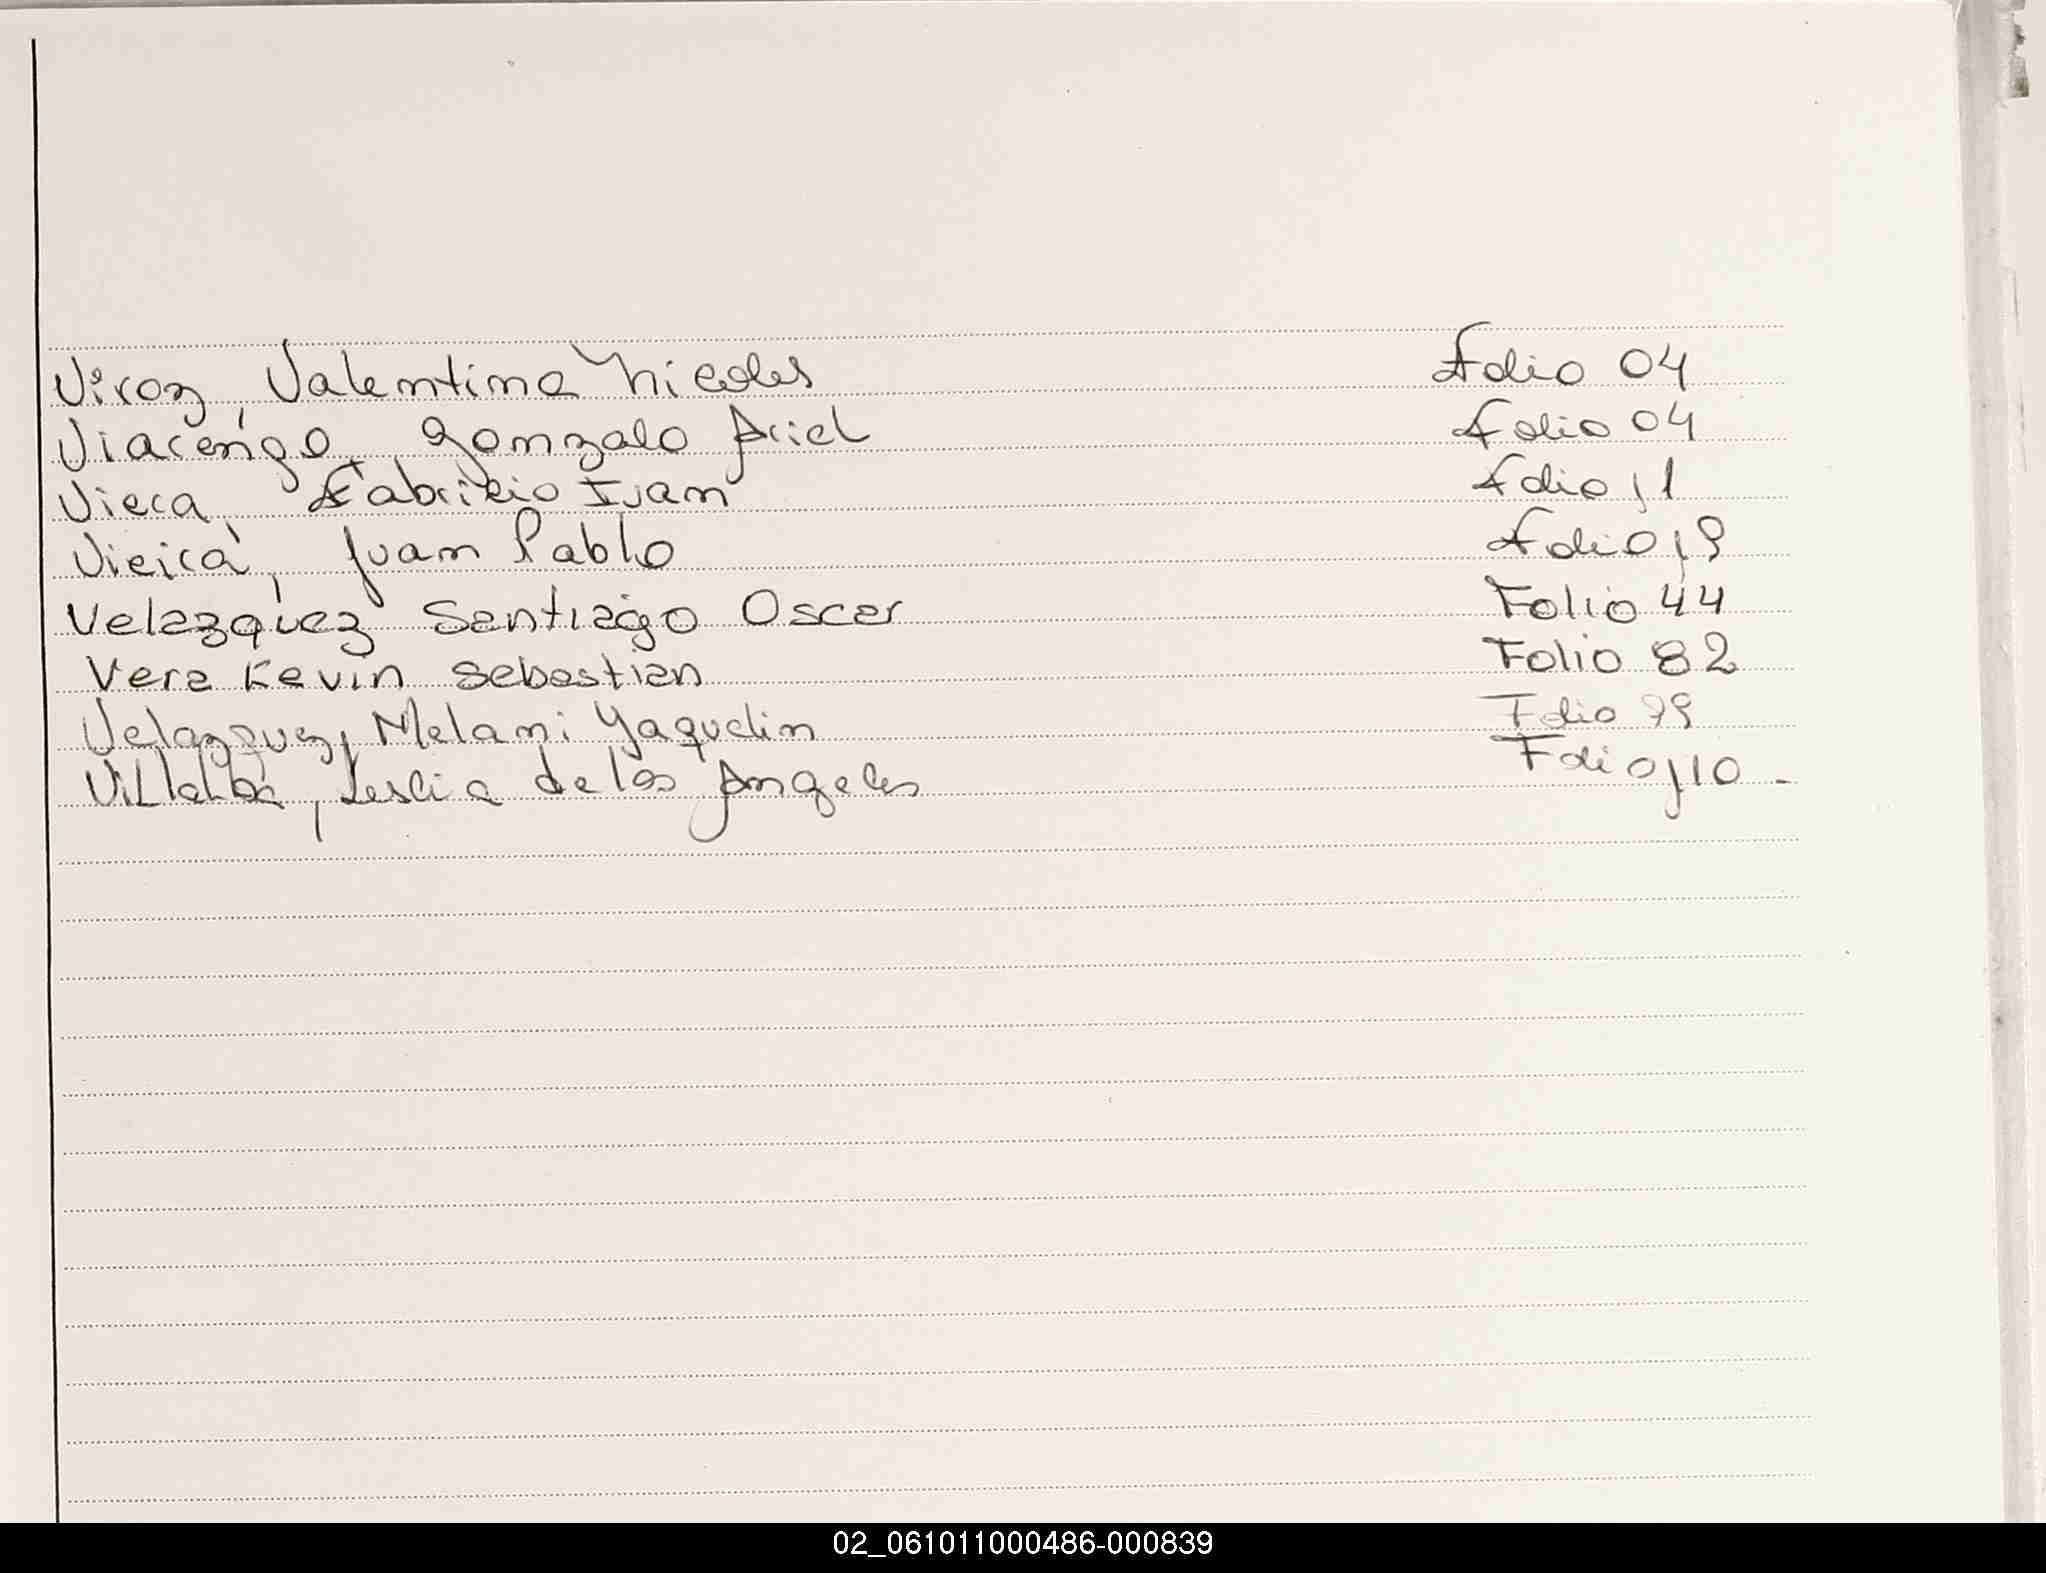 Viroz, Valentino Nicolas Folio 04
Viacengo, Gonzalo Ariel Folio 04
Viera, Fabricio Ivan Folio 11
Vieira, Juan Pablo Folio 19
Velazquez Santiago Oscar Folio 44
Vera Kevin Sebastian Folio 82
Velazquez, Melani Yaquelin Folio 79
Villalba, Leslia de los Angeles Folio 110 -
02_061011000486-000839